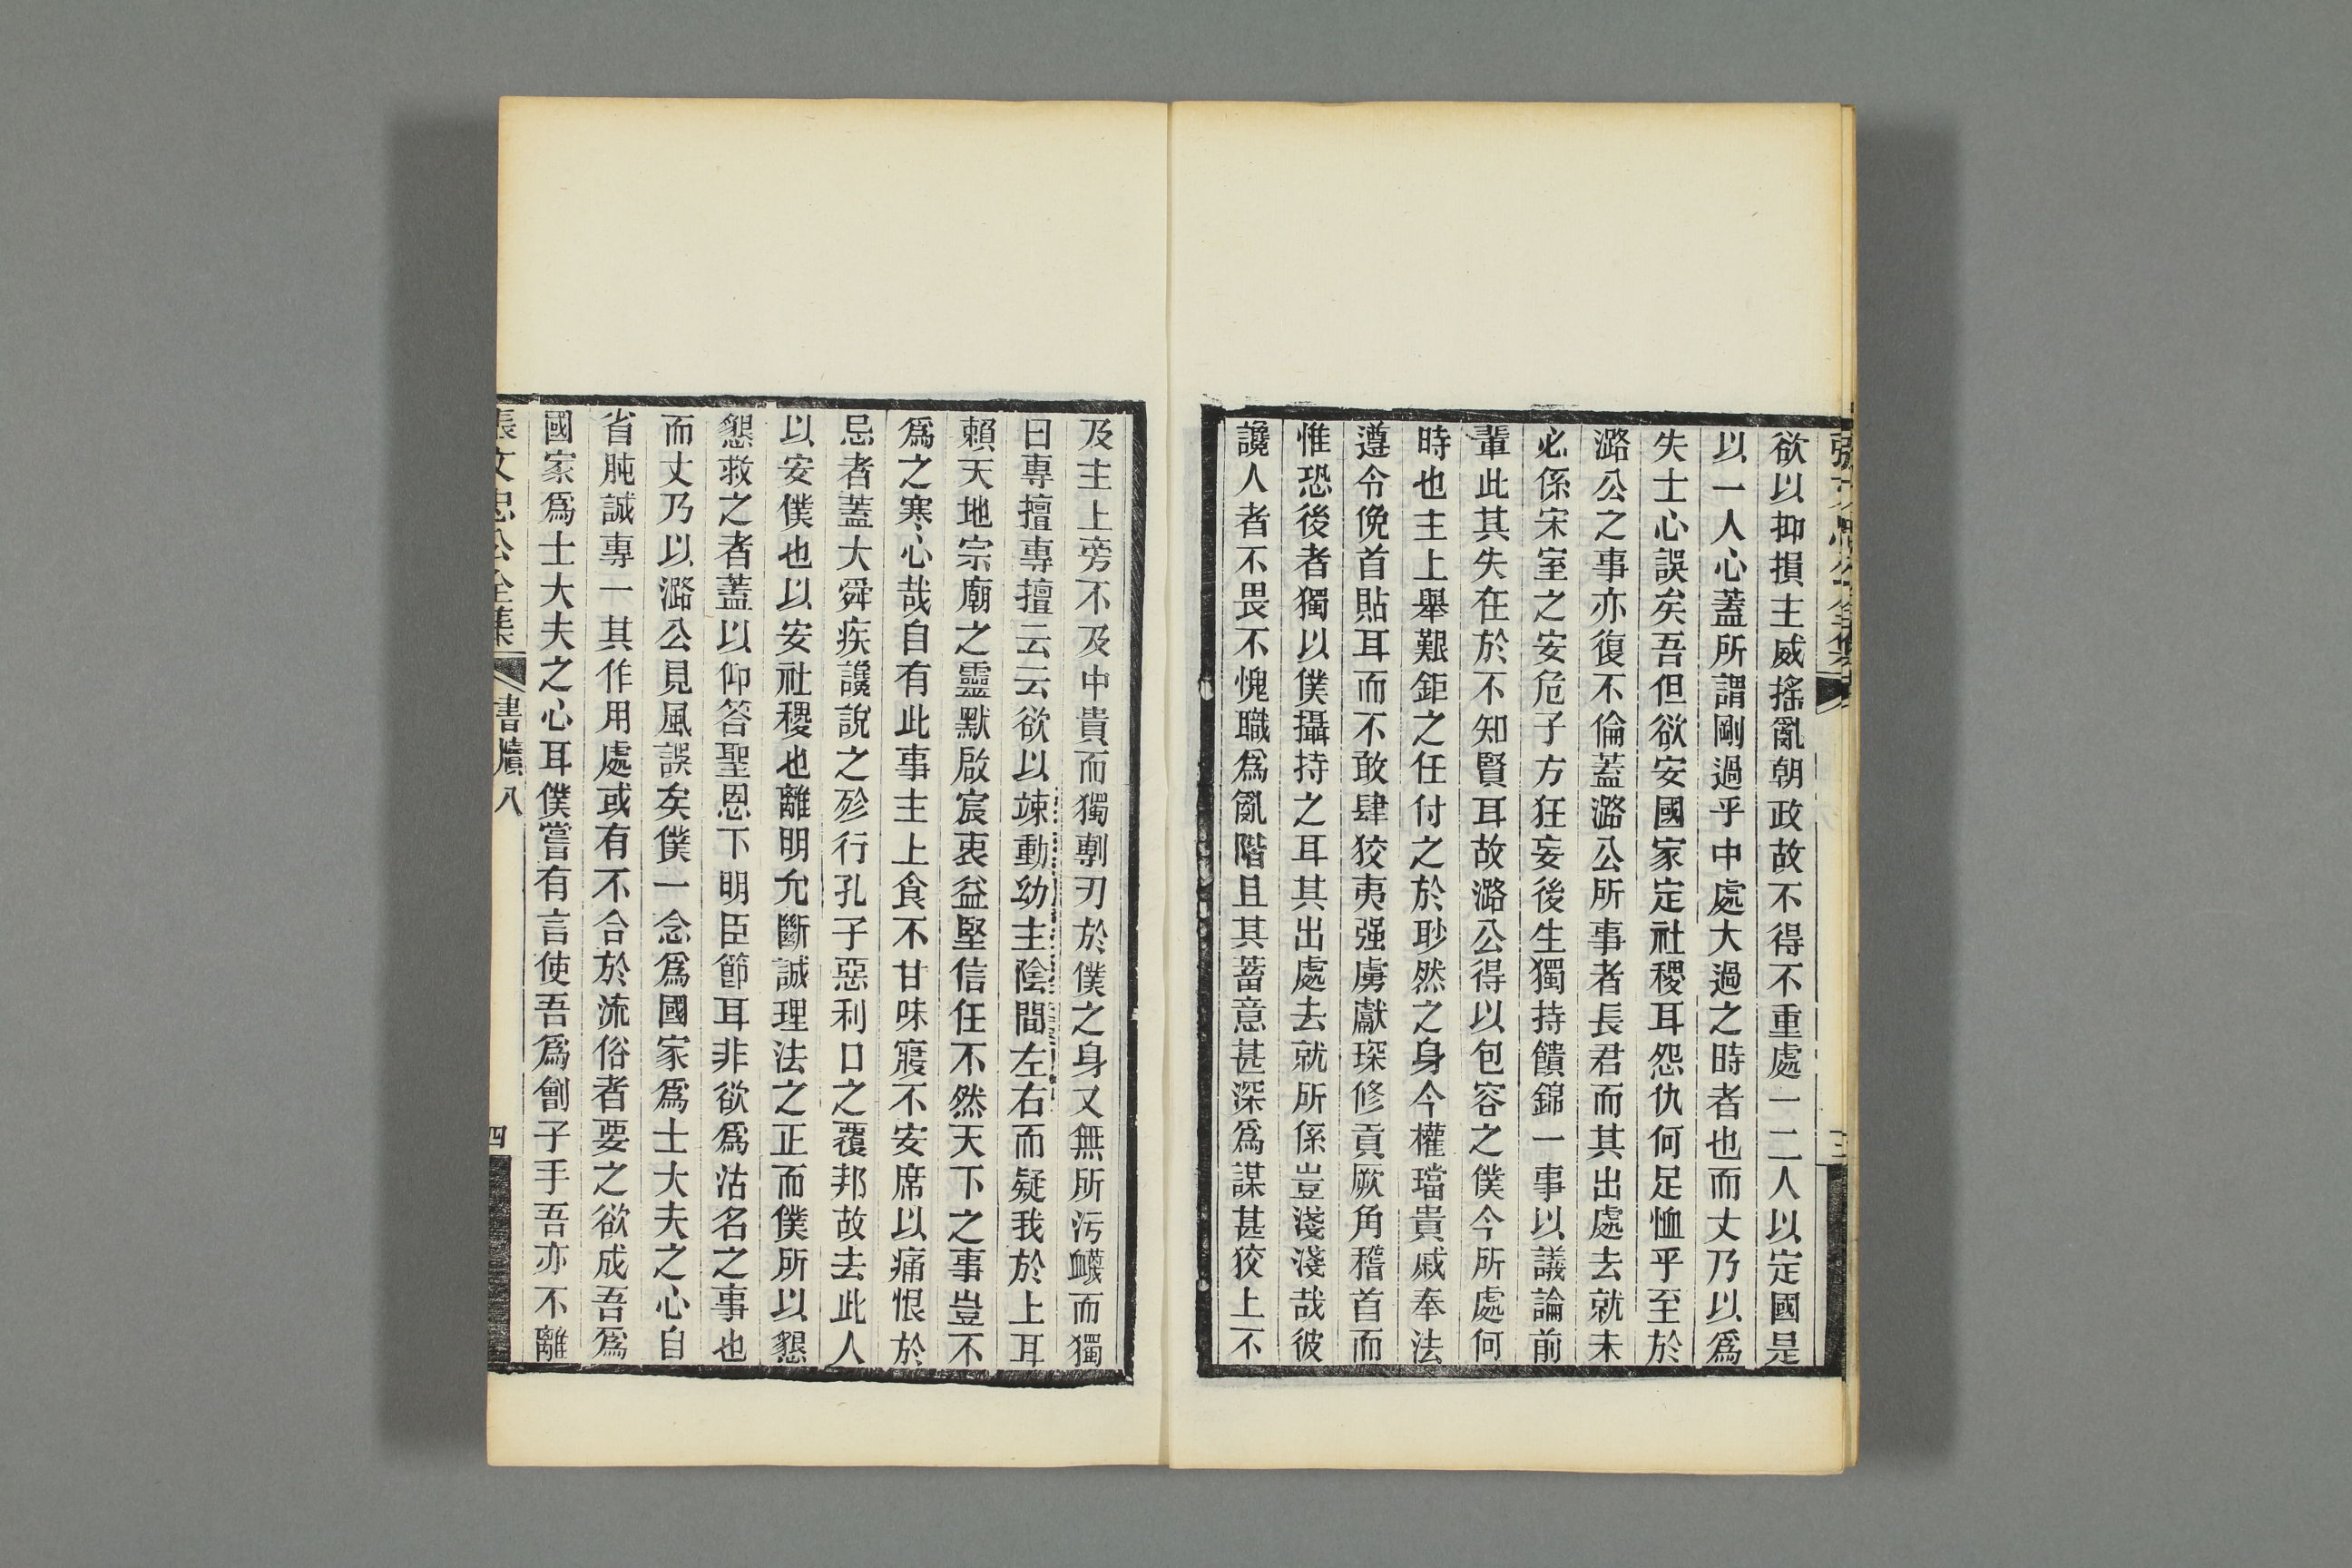 欲以抑損主威搖亂朝政故不得不重處一二人以定國是
以一人心蓋所謂剛過乎中處大過之時者也而丈乃以爲
失士心誤矣吾但欲安國家定社稷耳怨仇何足恤乎至於
潞公之事亦復不倫蓋潞公所事者長君而其出處去就未
必係宋室之安危子方狂妄後生獨持饋錦一事以議論前
輩此其失在於不知賢耳故潞公得以包容之僕今所處何
時也主上舉艱鉅之任付之於眇然之身今權璫貴戚奉法
遵令俛首貼耳而不敢肆狡夷强虜獻琛修貢厥角稽首而
惟恐後者獨以僕攝持之耳其出處去就所係豈淺淺哉彼
讒人者不畏不愧職爲亂階且其蓄意甚深爲謀甚狡上不
及主上旁不及中貴而獨剚刃於僕之身又無所污衊而獨
曰專擅專擅云云欲以竦動幼主陰間左右而疑我於上耳
賴天地宗廟之靈默啟宸衷益堅信任不然天下之事豈不
爲之寒心哉自有此事主上食不甘味寢不安席以痛恨於
忌者蓋大舜疾讒說之殄行孔子惡利口之覆邦故去此人
以安僕也以安社稷也離明允斷誠理法之正而僕所以懇
懇救之者蓋以仰答聖恩下明臣節耳非欲爲沽名之事也
而丈乃以潞公見風誤矣僕一念爲國家爲士大夫之心自
省肫誠專一其作用處或有不合於流俗者要之欲成吾爲
國家爲士大夫之心耳僕嘗有言使吾爲劊子手吾亦不離
張文忠公全集
書牘八
四